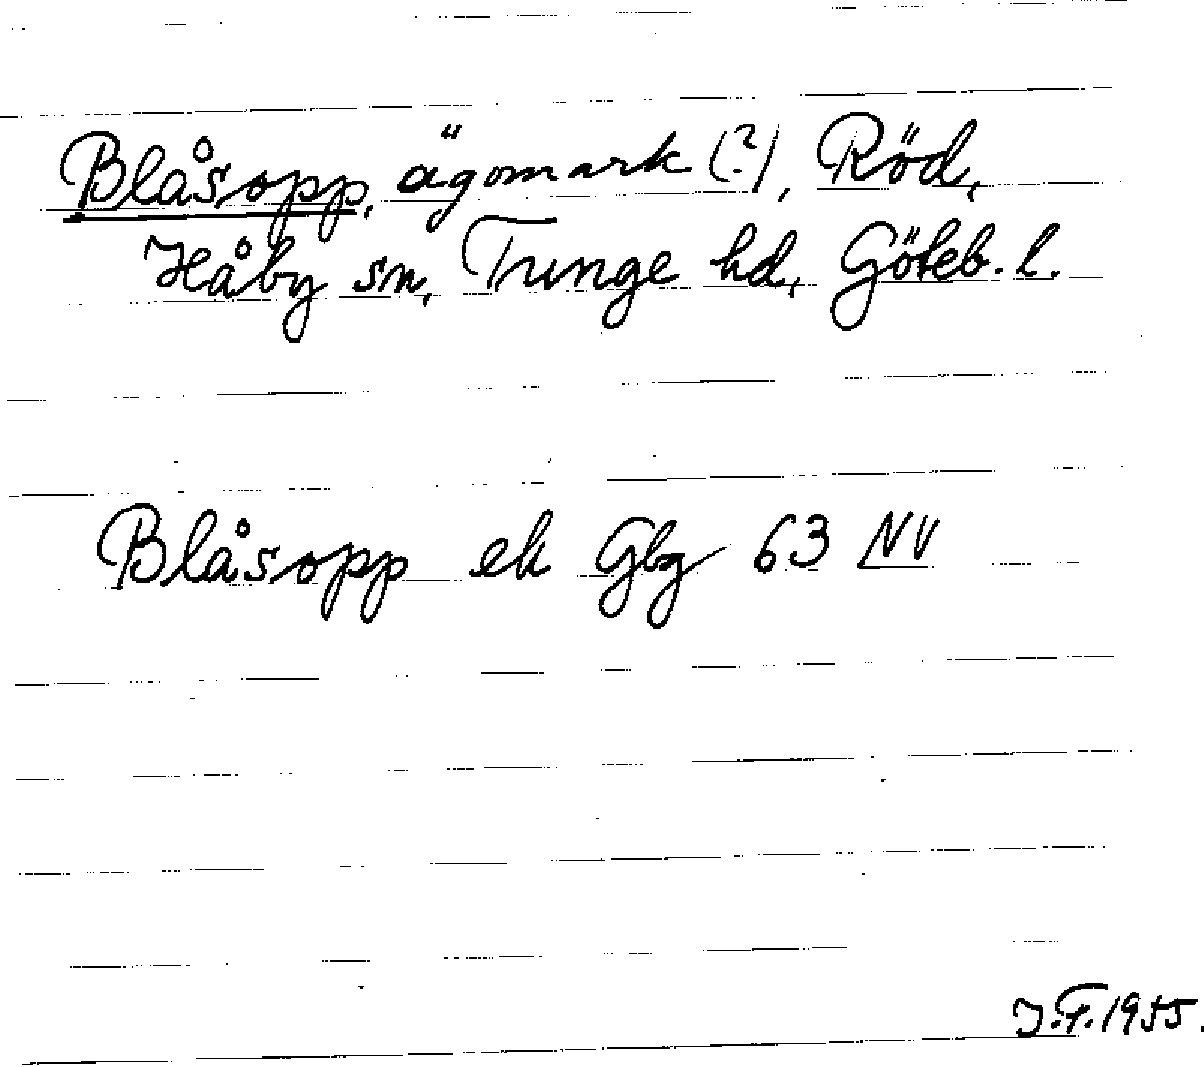 Blåsopp, ägomark (?), Röd,
Håby sn, Tunge hd, Göteb. l.
Blåsopp ek Gbg 63 NV
J.F. 1955.